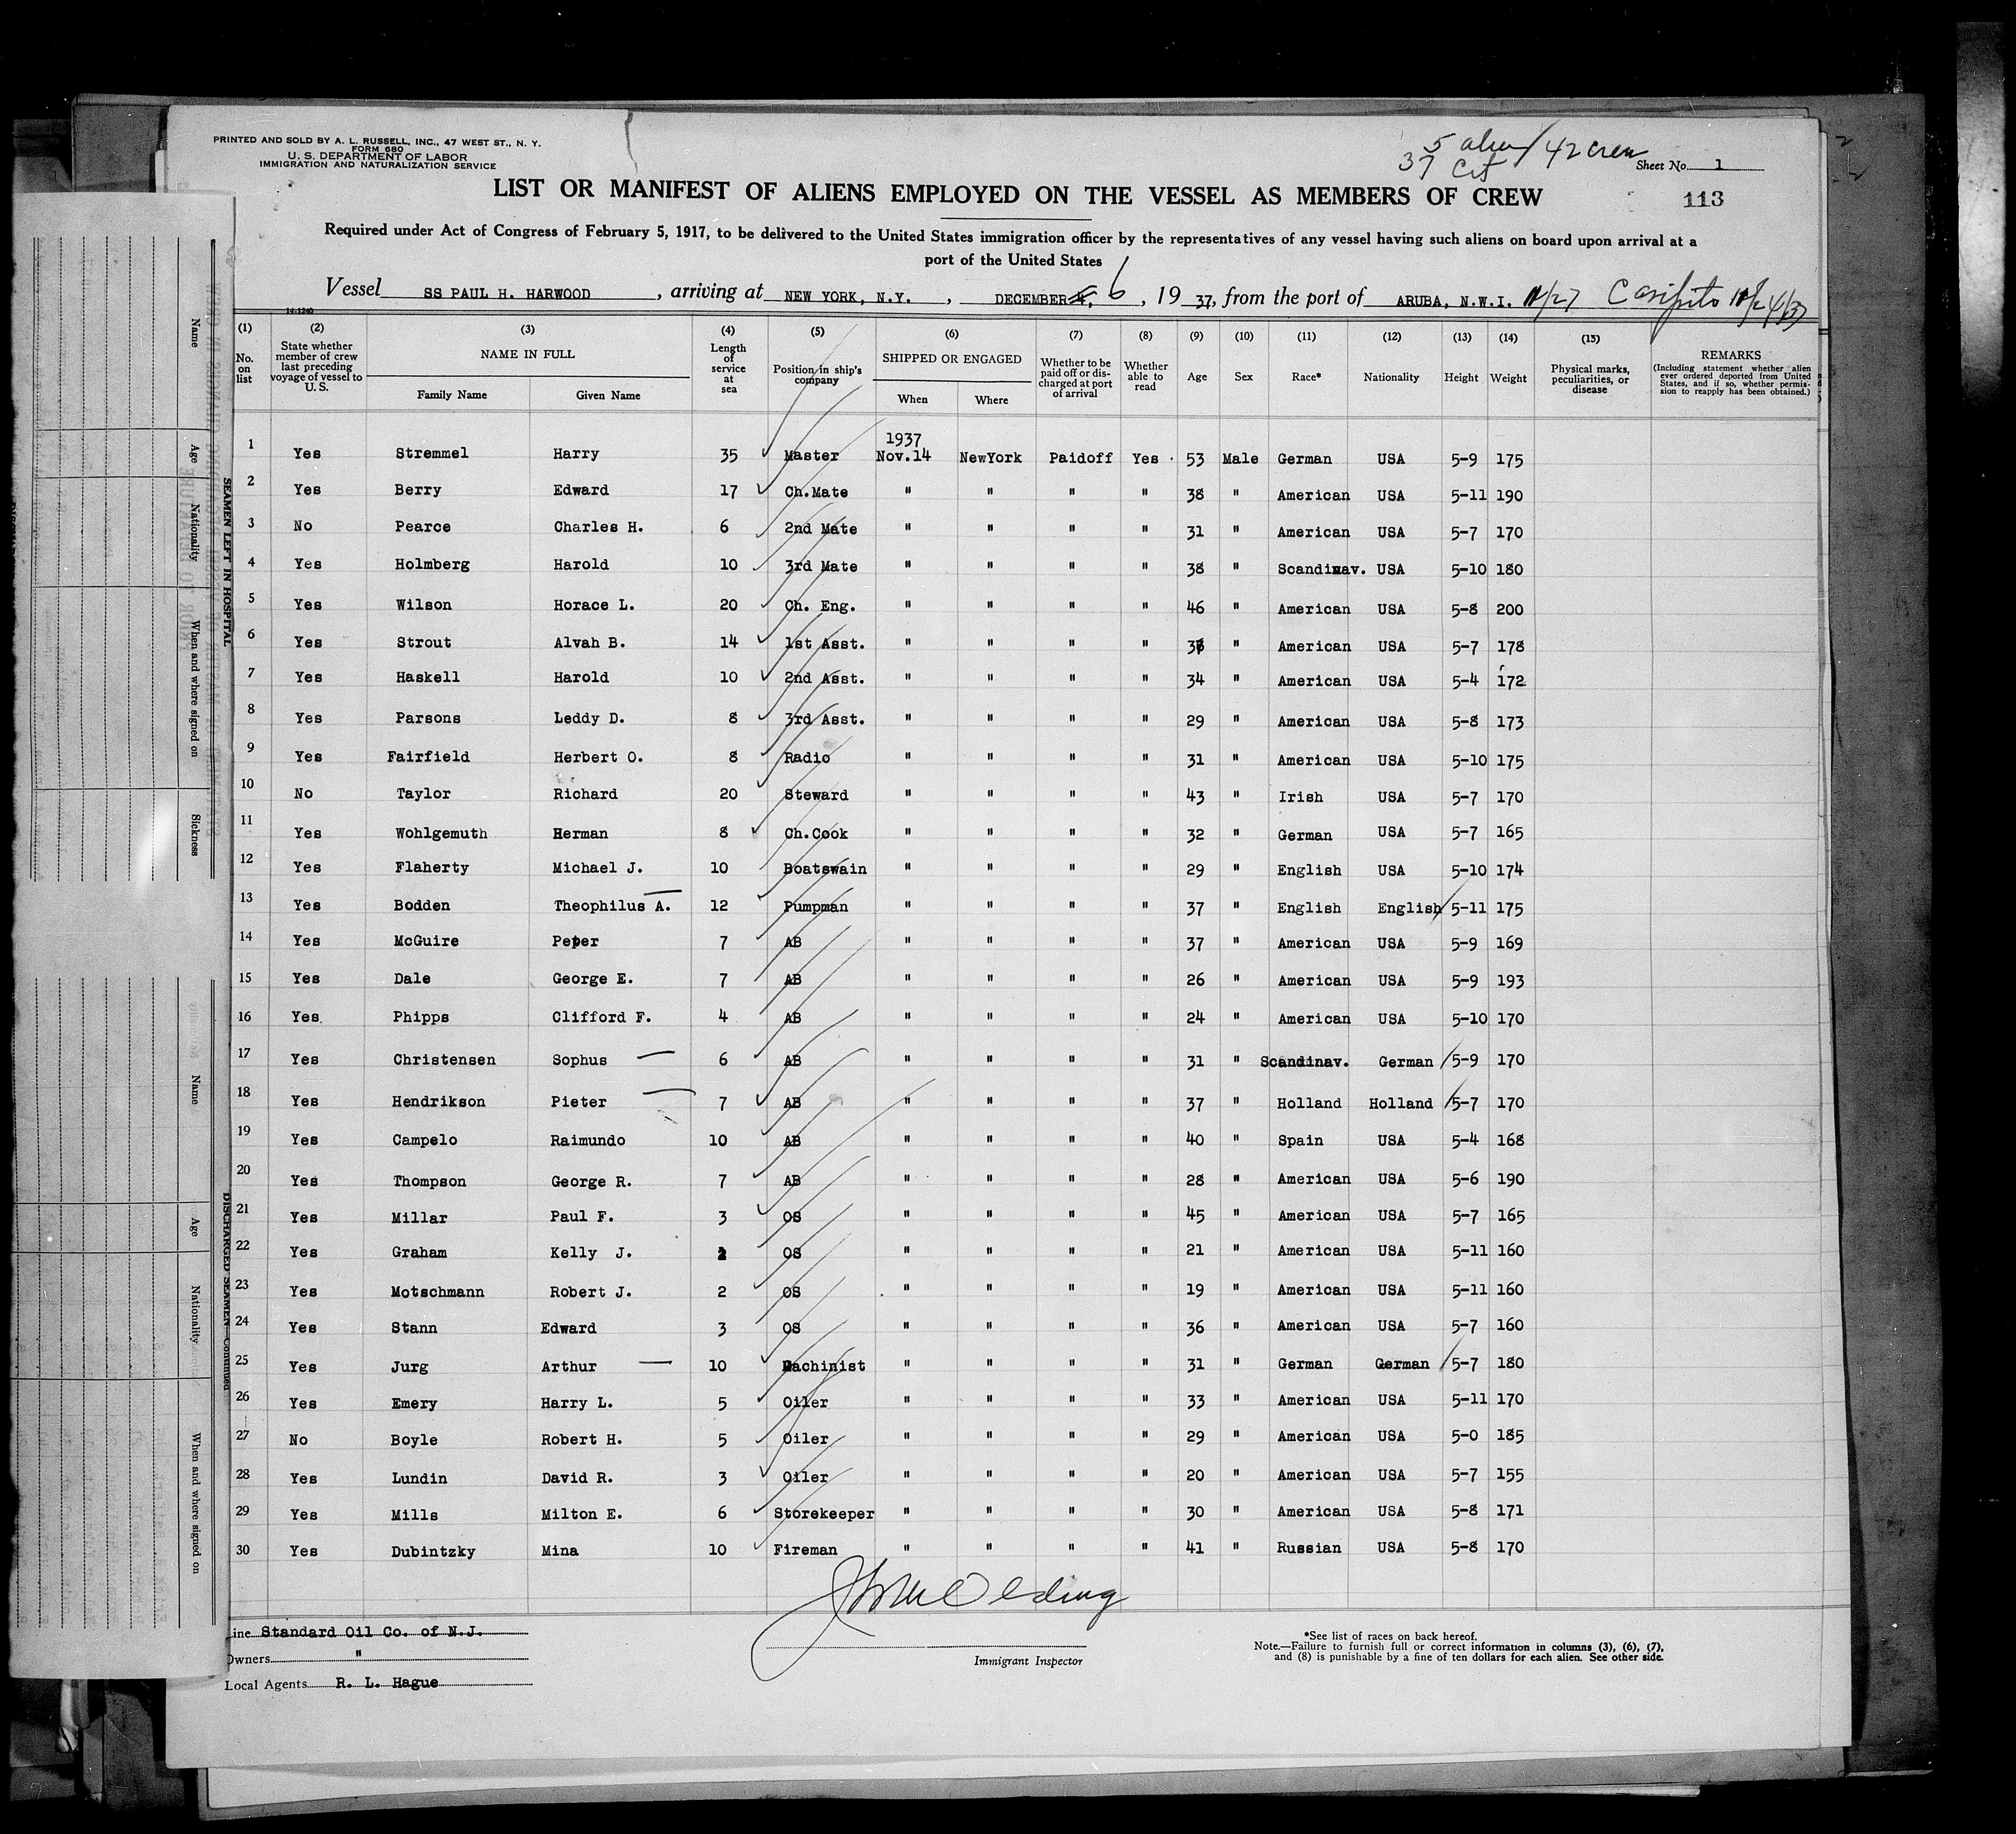 PRINTED AND SOLD BY A. L. RUSSELL, INC., 47 WEST ST., N. Y.
FORM 680
U. S. DEPARTMENT OF LABOR
IMMIGRATION AND NATURALIZATION SERVICE
5 alien / 42 crew
37 Cit
Sheet No. 1
LIST OR MANIFEST OF ALIENS EMPLOYED ON THE VESSEL AS MEMBERS OF CREW
113
Required under Act of Congress of February 5, 1917, to be delivered to the United States immigration officer by the representatives of any vessel having such aliens on board upon arrival at a
port of the United States
Vessel SS PAUL H. HARWOOD, arriving at NEW YORK, N.Y., DECEMBER 4, 6, 19 37, from the port of ARUBA, N.W.I. 11/27 Caripito 11/24/37
14-1240
(1) (2) (3) (4) (5) (6) (7) (8) (9) (10) (11) (12) (13) (14) (15)
No. on list
State whether member of crew last preceding voyage of vessel to U. S.
NAME IN FULL
Family Name Given Name
Length of service at sea
Position in ship's company
SHIPPED OR ENGAGED
When Where
Whether to be paid off or discharged at port of arrival
Whether able to read
Age Sex Race* Nationality Height Weight
Physical marks, peculiarities, or disease
REMARKS
(Including statement whether alien ever ordered deported from United States, and if so, whether permission to reapply has been obtained.)
1937
1 Yes Stremmel Harry 35 Master Nov.14 NewYork Paidoff Yes 53 Male German USA 5-9 175
2 Yes Berry Edward 17 Ch.Mate " " " " 38 " American USA 5-11 190
3 No Pearce Charles H. 6 2nd Mate " " " " 31 " American USA 5-7 170
4 Yes Holmberg Harold 10 3rd Mate " " " " 38 " Scandinav. USA 5-10 180
5 Yes Wilson Horace L. 20 Ch. Eng. " " " " 46 " American USA 5-8 200
6 Yes Strout Alvah B. 14 1st Asst. " " " " " American USA 5-7 178
7 Yes Haskell Harold 10 2nd Asst. " " " " 34 " American USA 5-4 172
8 Yes Parsons Leddy D. 8 3rd Asst. " " " " 29 " American USA 5-8 173
9 Yes Fairfield Herbert O. 8 Radio " " " " 31 " American USA 5-10 175
10 No Taylor Richard 20 Steward " " " " 43 " Irish USA 5-7 170
11 Yes Wohlgemuth Herman 8 Ch.Cook " " " " 32 " German USA 5-7 165
12 Yes Flaherty Michael J. 10 Boatswain " " " " 29 " English USA 5-10 174
13 Yes Bodden Theophilus A. 12 Pumpman " " " " 37 " English English 5-11 175
14 Yes McGuire Peter 7 AB " " " " 37 " American USA 5-9 169
15 Yes Dale George E. 7 AB " " " " 26 " American USA 5-9 193
16 Yes Phipps Clifford F. 4 AB " " " " 24 " American USA 5-10 170
17 Yes Christensen Sophus 6 AB " " " " 31 " Scandinav. German 5-9 170
18 Yes Hendrikson Pieter 7 AB " " " " 37 " Holland Holland 5-7 170
19 Yes Campelo Raimundo 10 AB " " " " 40 " Spain USA 5-4 168
20 Yes Thompson George R. 7 AB " " " " 28 " American USA 5-6 190
21 Yes Millar Paul F. 3 OS " " " " 45 " American USA 5-7 165
22 Yes Graham Kelly J. OS " " " " 21 " American USA 5-11 160
23 Yes Motschmann Robert J. 2 OS " " " " 19 " American USA 5-11 160
24 Yes Stann Edward 3 OS " " " " 36 " American USA 5-7 160
25 Yes Jurg Arthur 10 Machinist " " " " 31 " German German 5-7 180
26 Yes Emery Harry L. 5 Oiler " " " " 33 " American USA 5-11 170
27 No Boyle Robert H. 5 Oiler " " " " 29 " American USA 5-0 185
28 Yes Lundin David R. 3 Oiler " " " " 20 " American USA 5-7 155
29 Yes Mills Milton E. 6 Storekeeper " " " " 30 " American USA 5-8 171
30 Yes Dubintzky Mina 10 Fireman " " " " 41 " Russian USA 5-8 170
Immigrant Inspector
Line Standard Oil Co. of N.J.
Owners "
Local Agents R. L. Hague
*See list of races on back hereof.
Note.—Failure to furnish full or correct information in columns (3), (6), (7),
and (8) is punishable by a fine of ten dollars for each alien. See other side.
SEAMEN LEFT IN HOSPITAL
Name
Age
Nationality
When and where signed on
Sickness
DISCHARGED SEAMEN—Continued
Name
Age
Nationality
When and where signed on